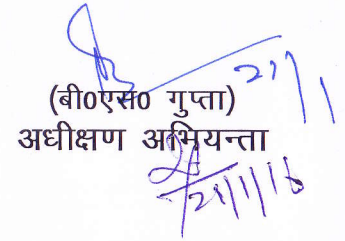 21/1
(बी0एस0 गुप्ता)
अधीक्षण अभियन्ता
21/1/16